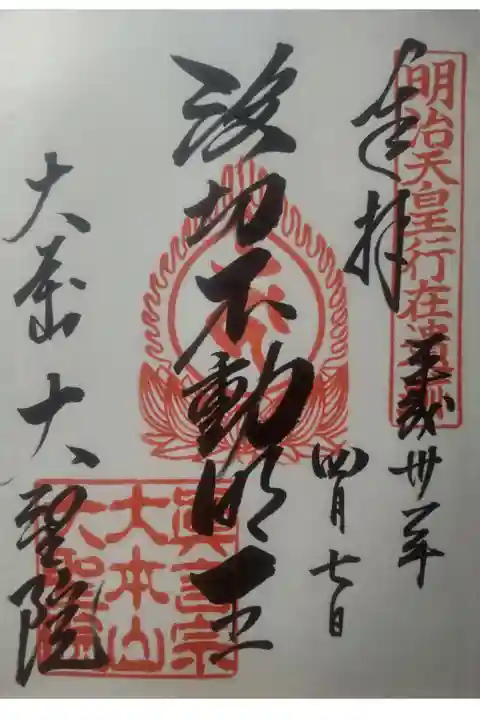 明治天皇行在遺
奉拝
平成卅年
四月七日
波切不動明王
大本山大聖院
眞言宗
大本山
大聖院